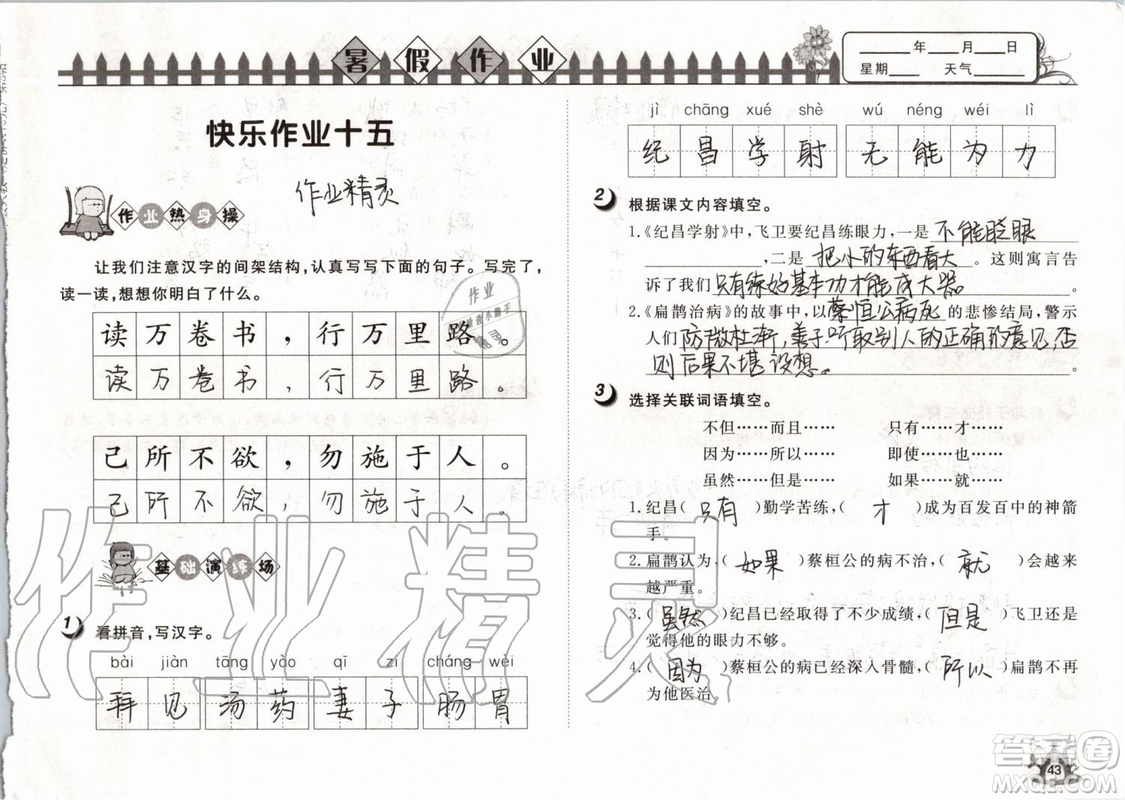 暑假作业
____年__月__日
星期____ 天气____
快乐作业十五
作业精灵
作业热身操
让我们注意汉字的间架结构,认真写写下面的句子。写完了,
读一读,想想你明白了什么。
读万卷书,行万里路。
读万卷书,行万里路。
己所不欲,勿施于人。
己所不欲,勿施于人。
基础演练场
1 看拼音,写汉字。
bài jiàn tāng yào qī zi cháng wèi
拜见 汤药 妻子 肠胃
jì chāng xué shè wú néng wéi lì
纪昌学射 无能为力
2 根据课文内容填空。
1.《纪昌学射》中,飞卫要纪昌练眼力,一是不能眨眼
,二是把小的东西看大。这则寓言告
诉了我们只有练好基本功才能成大器。
2.《扁鹊治病》的故事中,以蔡恒公病死的悲惨结局,警示
人们防微杜渐,善于听取别人的正确的意见,否
则后果不堪设想.
3 选择关联词语填空。
不但……而且…… 只有……才……
因为……所以…… 即使……也……
虽然……但是…… 如果……就……
1.纪昌(只有)勤学苦练,(才)成为百发百中的神箭
手。
2.扁鹊认为,(如果)蔡桓公的病不治,(就)会越来
越严重。
3.(虽然)纪昌已经取得了不少成绩,(但是)飞卫还是
觉得他的眼力不够。
4.(因为)蔡桓公的病已经深入骨髓,(所以)扁鹊不再
为他医治。
43
作业精灵
答案圈
MXQE.COM